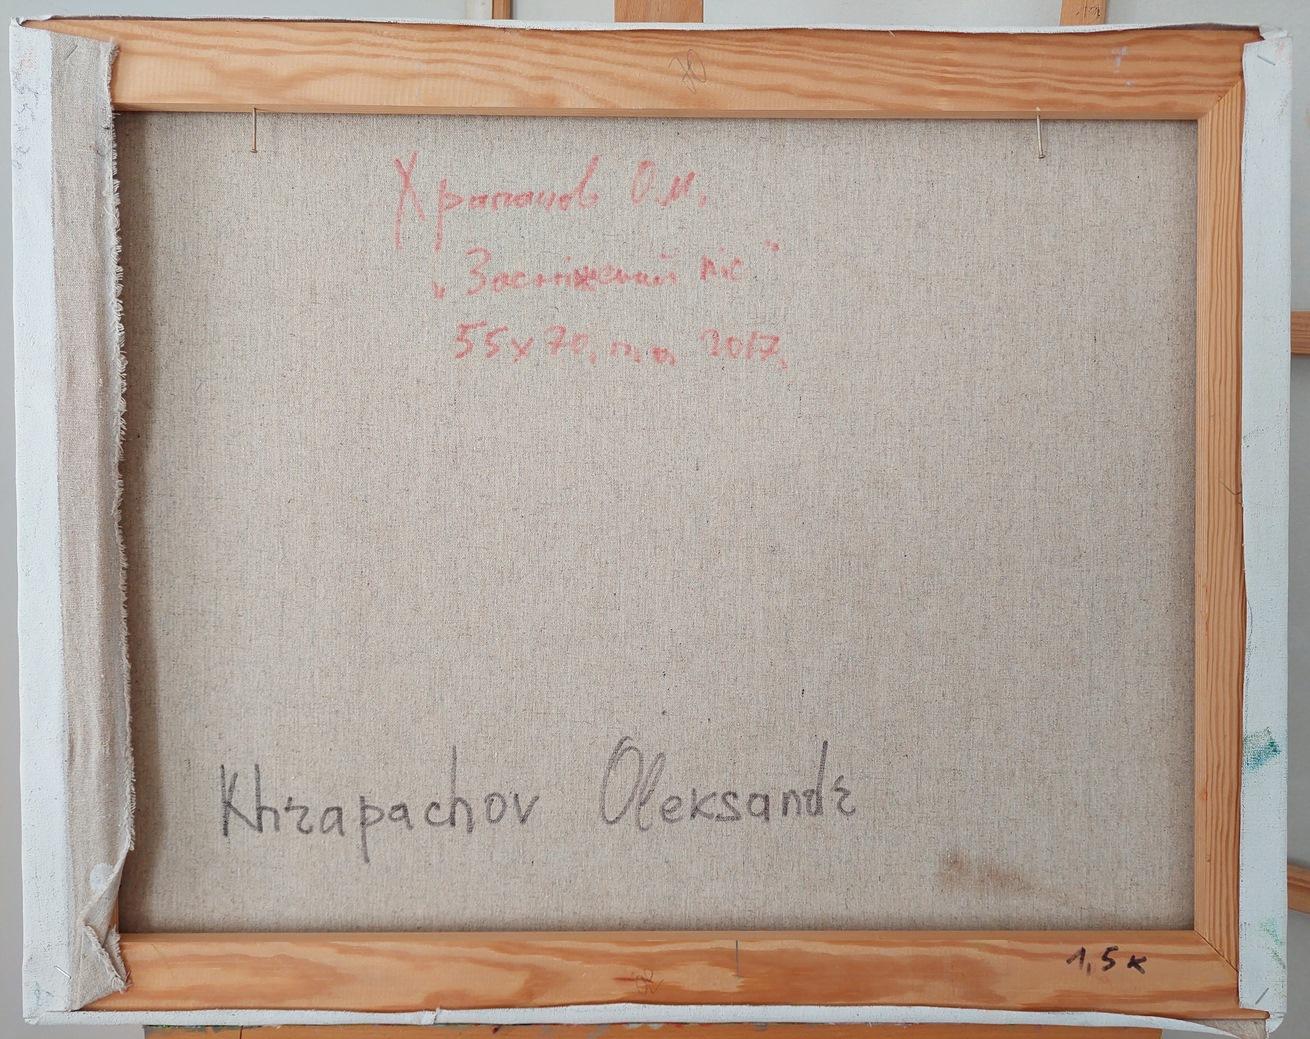 70
Храпачов О.М.
„Засніжений ліс"
55х70, п,о 2017.
Khrapachov Oleksandr
1,5к